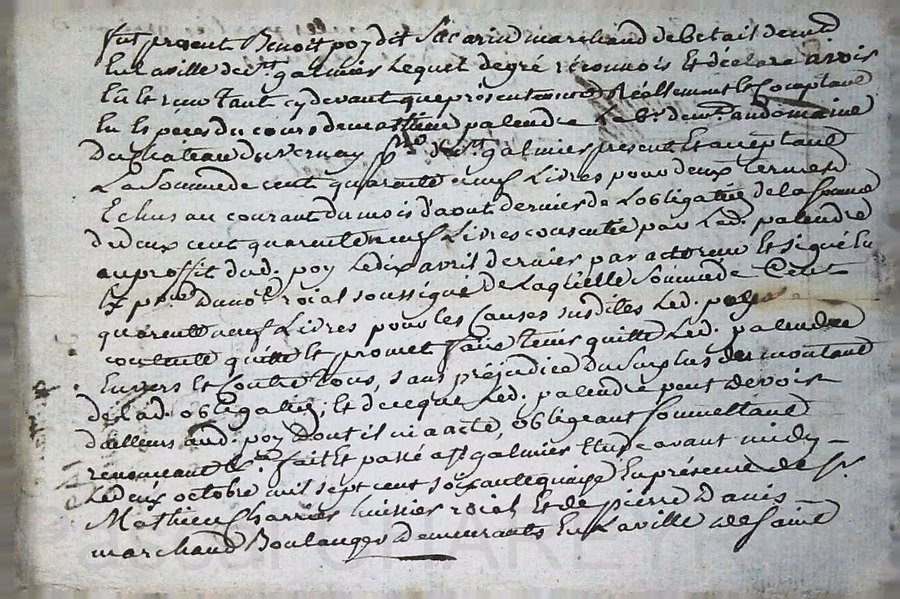 fut present Benoit poy dit Sacarin marchand de betail demt.
En la ville de st. galmier Lequel de gré reconnois Et declare avois
Eu et reçu tant cy devant que présentement Réellement Et Comptant
En Espéces du cours de mathieu palendre Labr. demt. au domaine
Du chateau du vernay psse. de st. galmier présent Et acceptant
La Somme de cent quarante neuf Livres pour deux termes
Echus au courant du mois d'aout dernier de Lobligation de la Somme
de deux cent quarente neuf Livres consentie par Led. palendre
au proffit dud. poy Le dix avril dernier par acte reçu Et signé En
Ex pre. Du not. roial soussigné de Laquelle Somme de Cent
quarente neuf Livres pour les Causes susdites Led. poy se
contente quitte Et promet faire tenir quitte Led. palendre
Envers Et Contre tous, sans préjudice du Surplus du montant
de lad. obligation, Et de ce que Led. palendre peut devoir
d'ailleurs aud. poy Dont il in a acte, obligeant Soumettant
renonceant &a. fait Et passé a st. galmier Etude avant midy
Le deux octobre mil sept cent soixante quinze En présence de sr.
Mathieu Charrier huissier roial Et de pierre Danis
marchand Boulanger demeurants En La ville de Saint